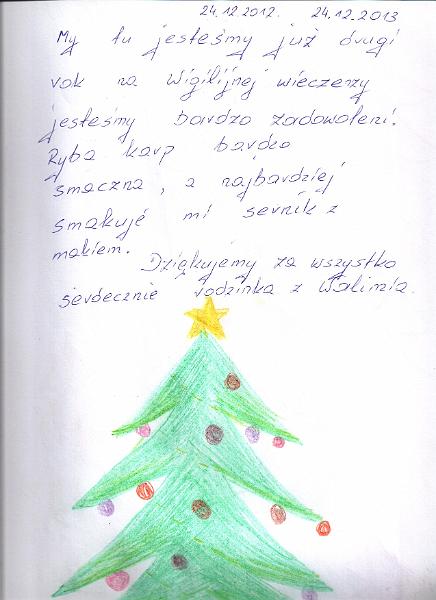 24.12.2012. 24.12.2013
My tu jesteśmy już drugi
rok na Wigilijnej wieczerzy
jesteśmy bardzo zadowoleni.
Ryba karp bardzo
smaczna, a najbardziej
smakuje mi sernik z
makiem.
Dziękujemy za wszystko
serdecznie rodzinka z Walimia.